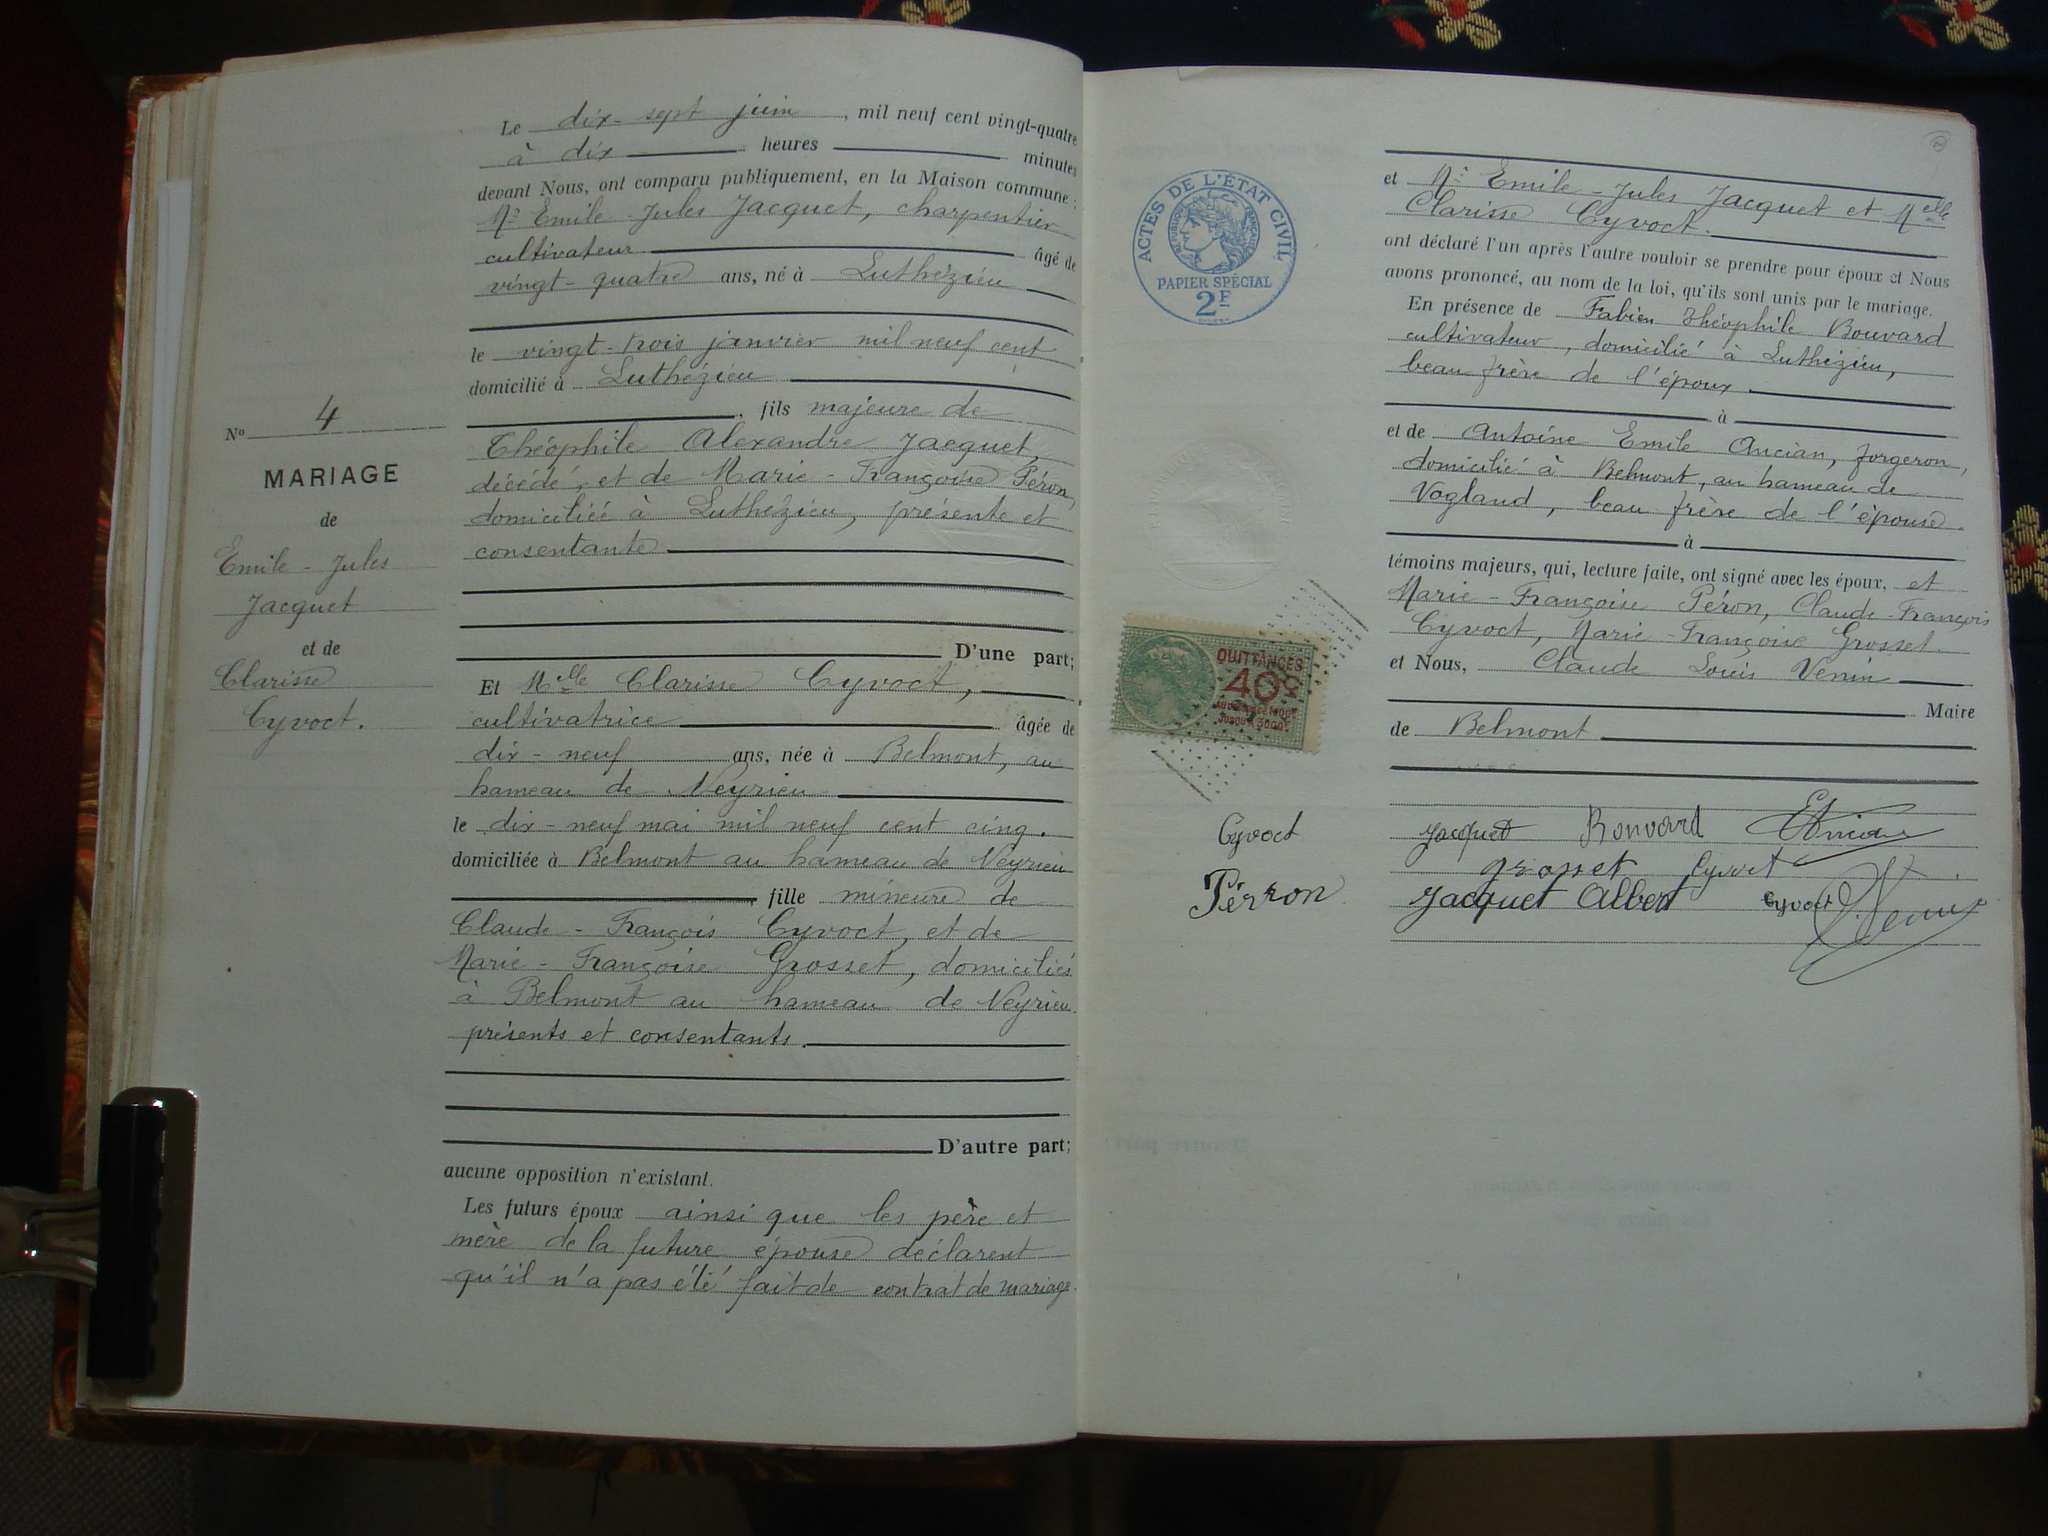 Le dix-sept juin, mil neuf cent vingt-quatre
à dix heures minutes
devant Nous, ont comparu publiquement, en la Maison commune :
Mr Emile-Jules Jacquet, charpentier
cultivateur âgé de
vingt-quatre ans, né à Luthézieu
le vingt-trois janvier mil neuf cent
domicilié à Luthézieu
, fils majeure de
Théophile Alexandre Jacquet,
décédé, et de Marie-Françoise Péron,
domiciliée à Luthézieu, présente et
consentante
D'une part;
No 4
MARIAGE
de
Emile-Jules
Jacquet
et de
Clarisse
Cyvoct.
Et Melle Clarisse Cyvoct,
cultivatrice âgée de
dix-neuf ans, née à Belmont, au
hameau de Neyrieu
le dix-neuf mai mil neuf cent cinq.
domiciliée à Belmont au hameau de Neyrieu
fille mineure de
Claude-François Cyvoct, et de
Marie-Françoise Grosset, domiciliés
à Belmont au hameau de Neyrieu
présents et consentants.
D'autre part;
aucune opposition n'existant.
Les futurs époux ainsi que les père et
mère de la future épouse déclarent
qu'il n'a pas été fait de contrat de mariage.
ACTES DE L'ÉTAT CIVIL
RÉPUBLIQUE FRANÇAISE
PAPIER SPÉCIAL
2F
et Mr Emile-Jules Jacquet et Melle
Clarisse Cyvoct.
ont déclaré l'un après l'autre vouloir se prendre pour époux et Nous
avons prononcé, au nom de la loi, qu'ils sont unis par le mariage.
En présence de Fabien Théophile Bouvard
cultivateur, domicilié à Luthézieu,
beau frère de l'époux
à
et de Antoine Emile Ancian, forgeron,
domicilié à Belmont, au hameau de
Vogland, beau frère de l'épouse.
à
témoins majeurs, qui, lecture faite, ont signé avec les époux, et
Marie-Françoise Péron, Claude-François
Cyvoct, Marie-Françoise Grosset.
et Nous, Claude Louis Venin
Maire
de Belmont
QUITTANCES
40c
Cyvoct Jacquet Bouvard
grosset Cyvoct
Pérron Jacquet Albert Cyvoct Venin